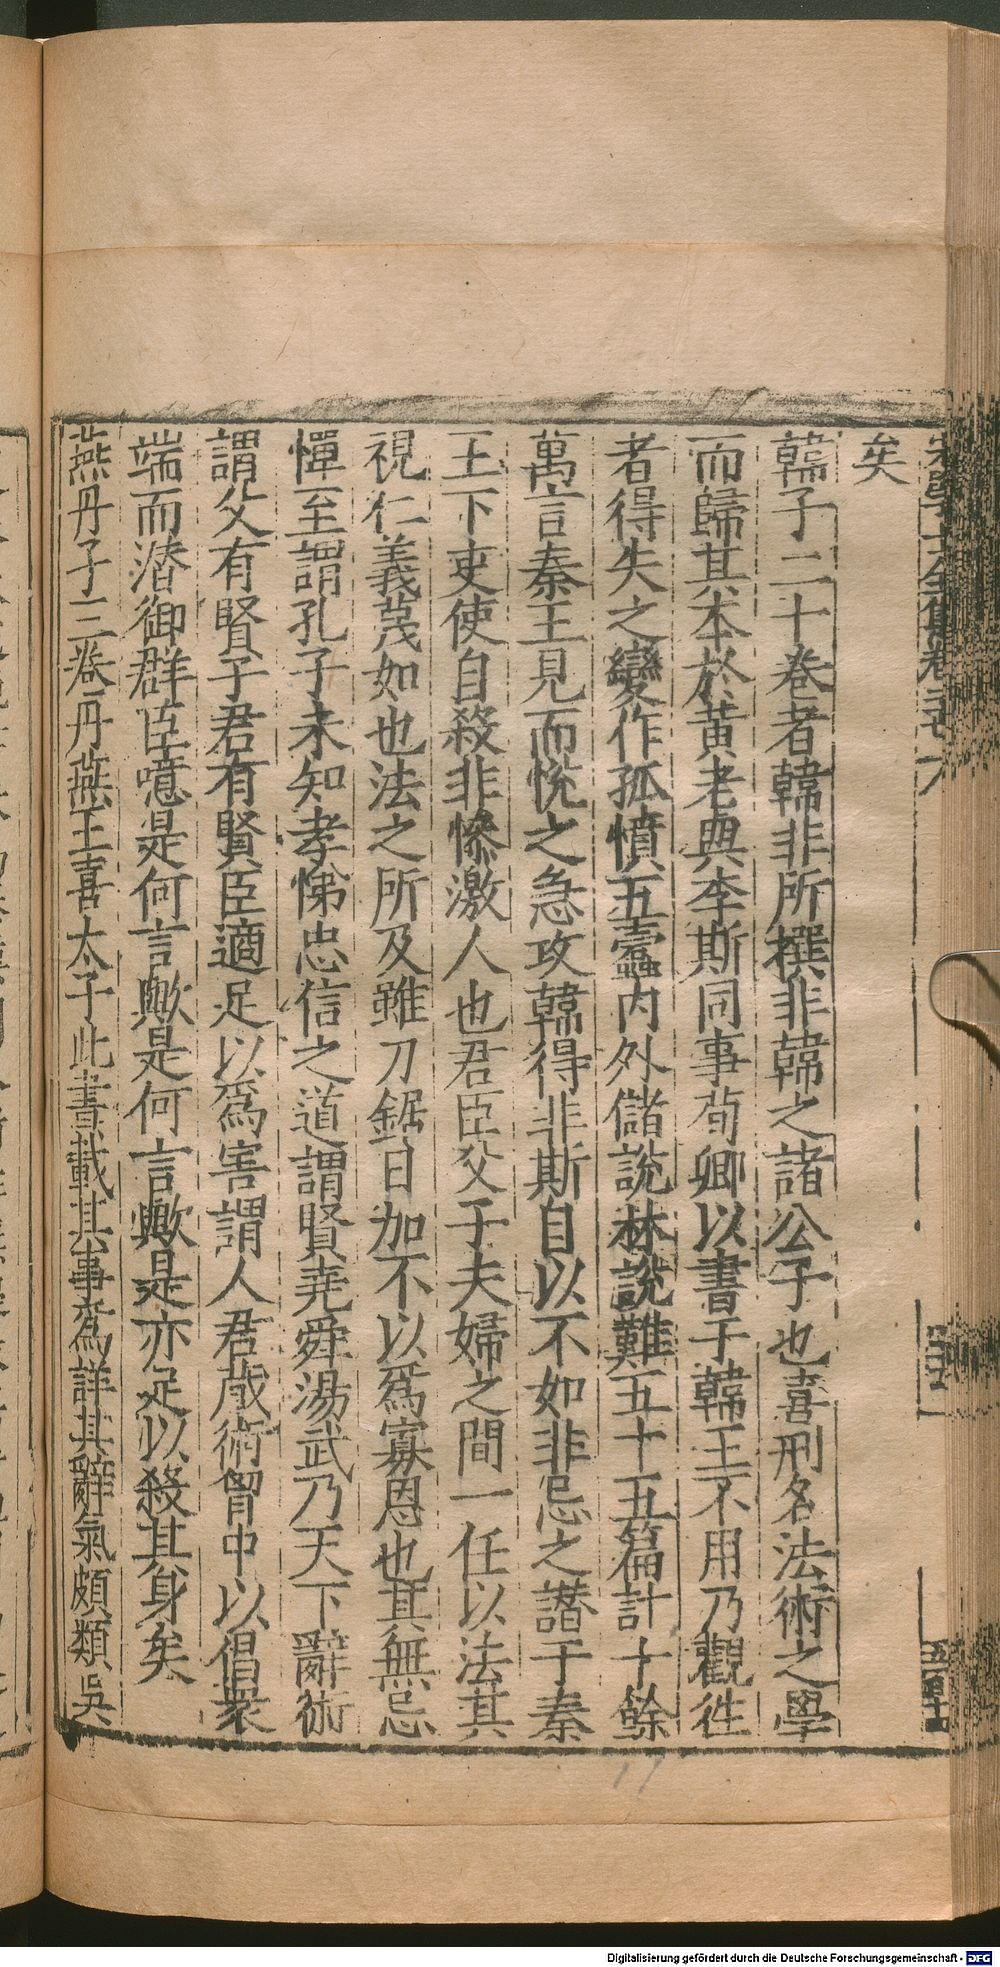 矣
韓子二十巻者韓非所撰非韓之諸公子也喜刑名法術之學
而歸其本於黄老與李斯同事荀卿以書于韓王不用乃觀徃
者得失之變作孤憤五蠹内外儲說林說難五十五篇計十餘
萬言秦王見而悅之急攻韓得非斯自以不如非忌之譖于秦
王下吏使自殺非慘激人也君臣父子夫婦之間一任以法其
視仁義蔑如也法之所及雖刀鋸日加不以爲寡恩也其無忌
憚至謂孔子未知孝悌忠信之道謂賢堯舜湯武乃天下辭術
謂父有賢子君有賢臣適足以爲害謂人君蔵術胷中以倡衆
端而潜御群臣噫是何言歟是何言歟是亦足以殺其身矣
燕丹子三巻丹燕王喜太子此書載其事爲詳其辭氣頗類吳
Digitalisierung gefördert durch die Deutsche Forschungsgemeinschaft - DFG